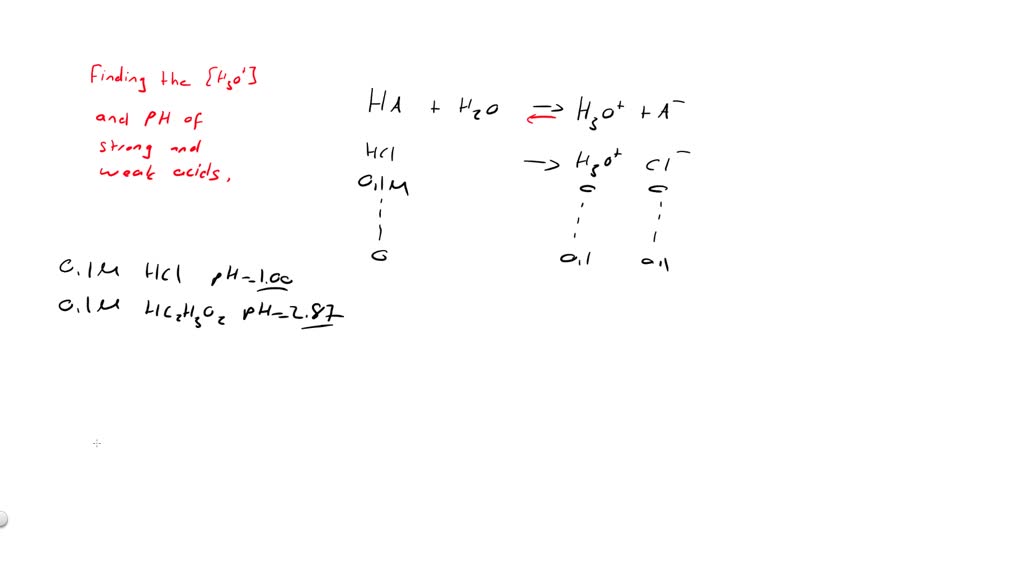 Finding the [H₃O⁺]
and PH of
strong and
weak acids.
HA + H₂O ⇌ H₃O⁺ + A⁻
HCl → H₃O⁺ Cl⁻
0.1M 0 0
0 0.1 0.1
0.1M HCl pH=1.00
0.1M HC₂H₃O₂ pH=2.87